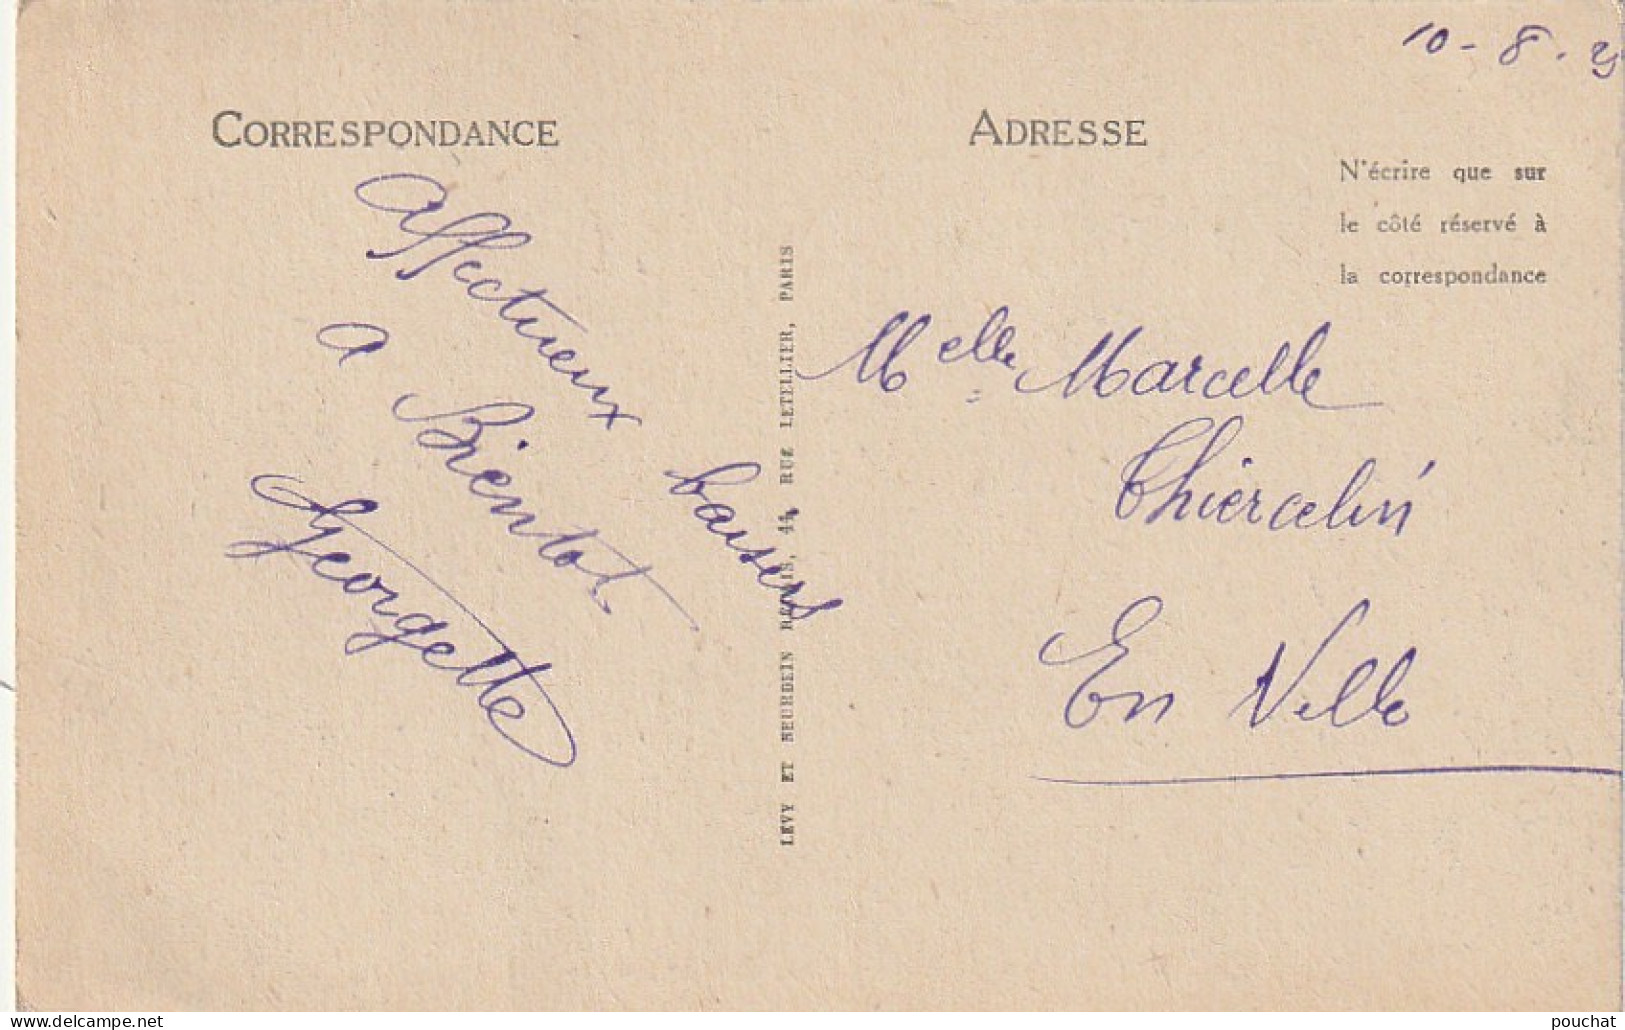 10-8.
CORRESPONDANCE
ADRESSE
N'écrire que sur
le côté réservé à
la correspondance
Affectueux baisers
a Bientot
Georgette
LEVY ET NEURDEIN RÉUNIS, 44, RUE LETELLIER, PARIS
Melle Marcelle
Thiercelin
En Ville
www.delcampe.net
pouchat